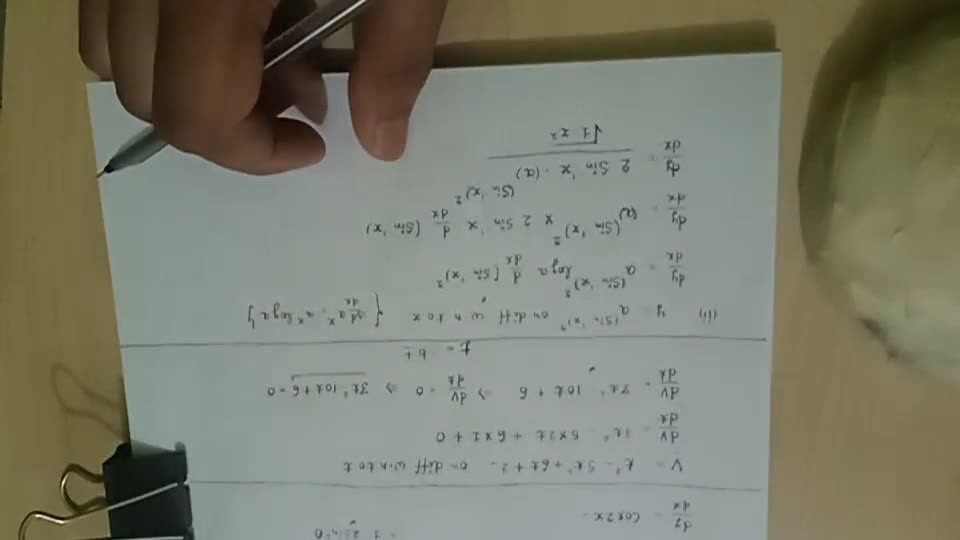 dy/dx = cos 2x
= 1 - 2 sin² 0
V = t³ - 5t² + 6t + 2 - on diff w.r.to t
dV/dt = 3t² - 5x2t + 6x1 + 0
dV/dt = 3t² - 10t + 6 ⇒ dV/dt = 0 ⇒ 3t² - 10t + 6 = 0
t =
(ii) y = a^(sin⁻¹x)² on diff w.r.to x { d/dx a^x = a^x log a }
dy/dx = a^(sin⁻¹x)² log a d/dx (sin⁻¹x)²
dy/dx = (a)^(sin⁻¹x)² x 2 sin⁻¹x d/dx (sin⁻¹x)
dy/dx = 2 sin⁻¹x · (a)^(sin⁻¹x)² / √1-x²